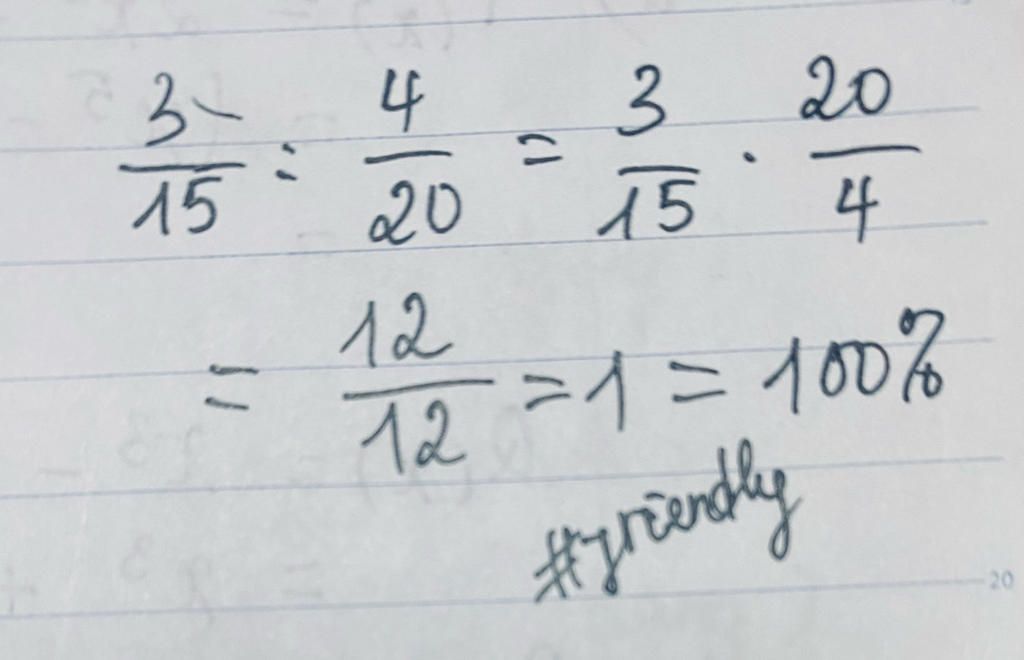 3/15 : 4/20 = 3/15 · 20/4
= 12/12 = 1 = 100%
#friendly
20